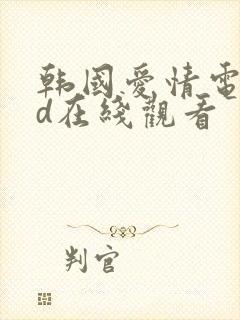 韩國愛情電
d在綫觀看
判官